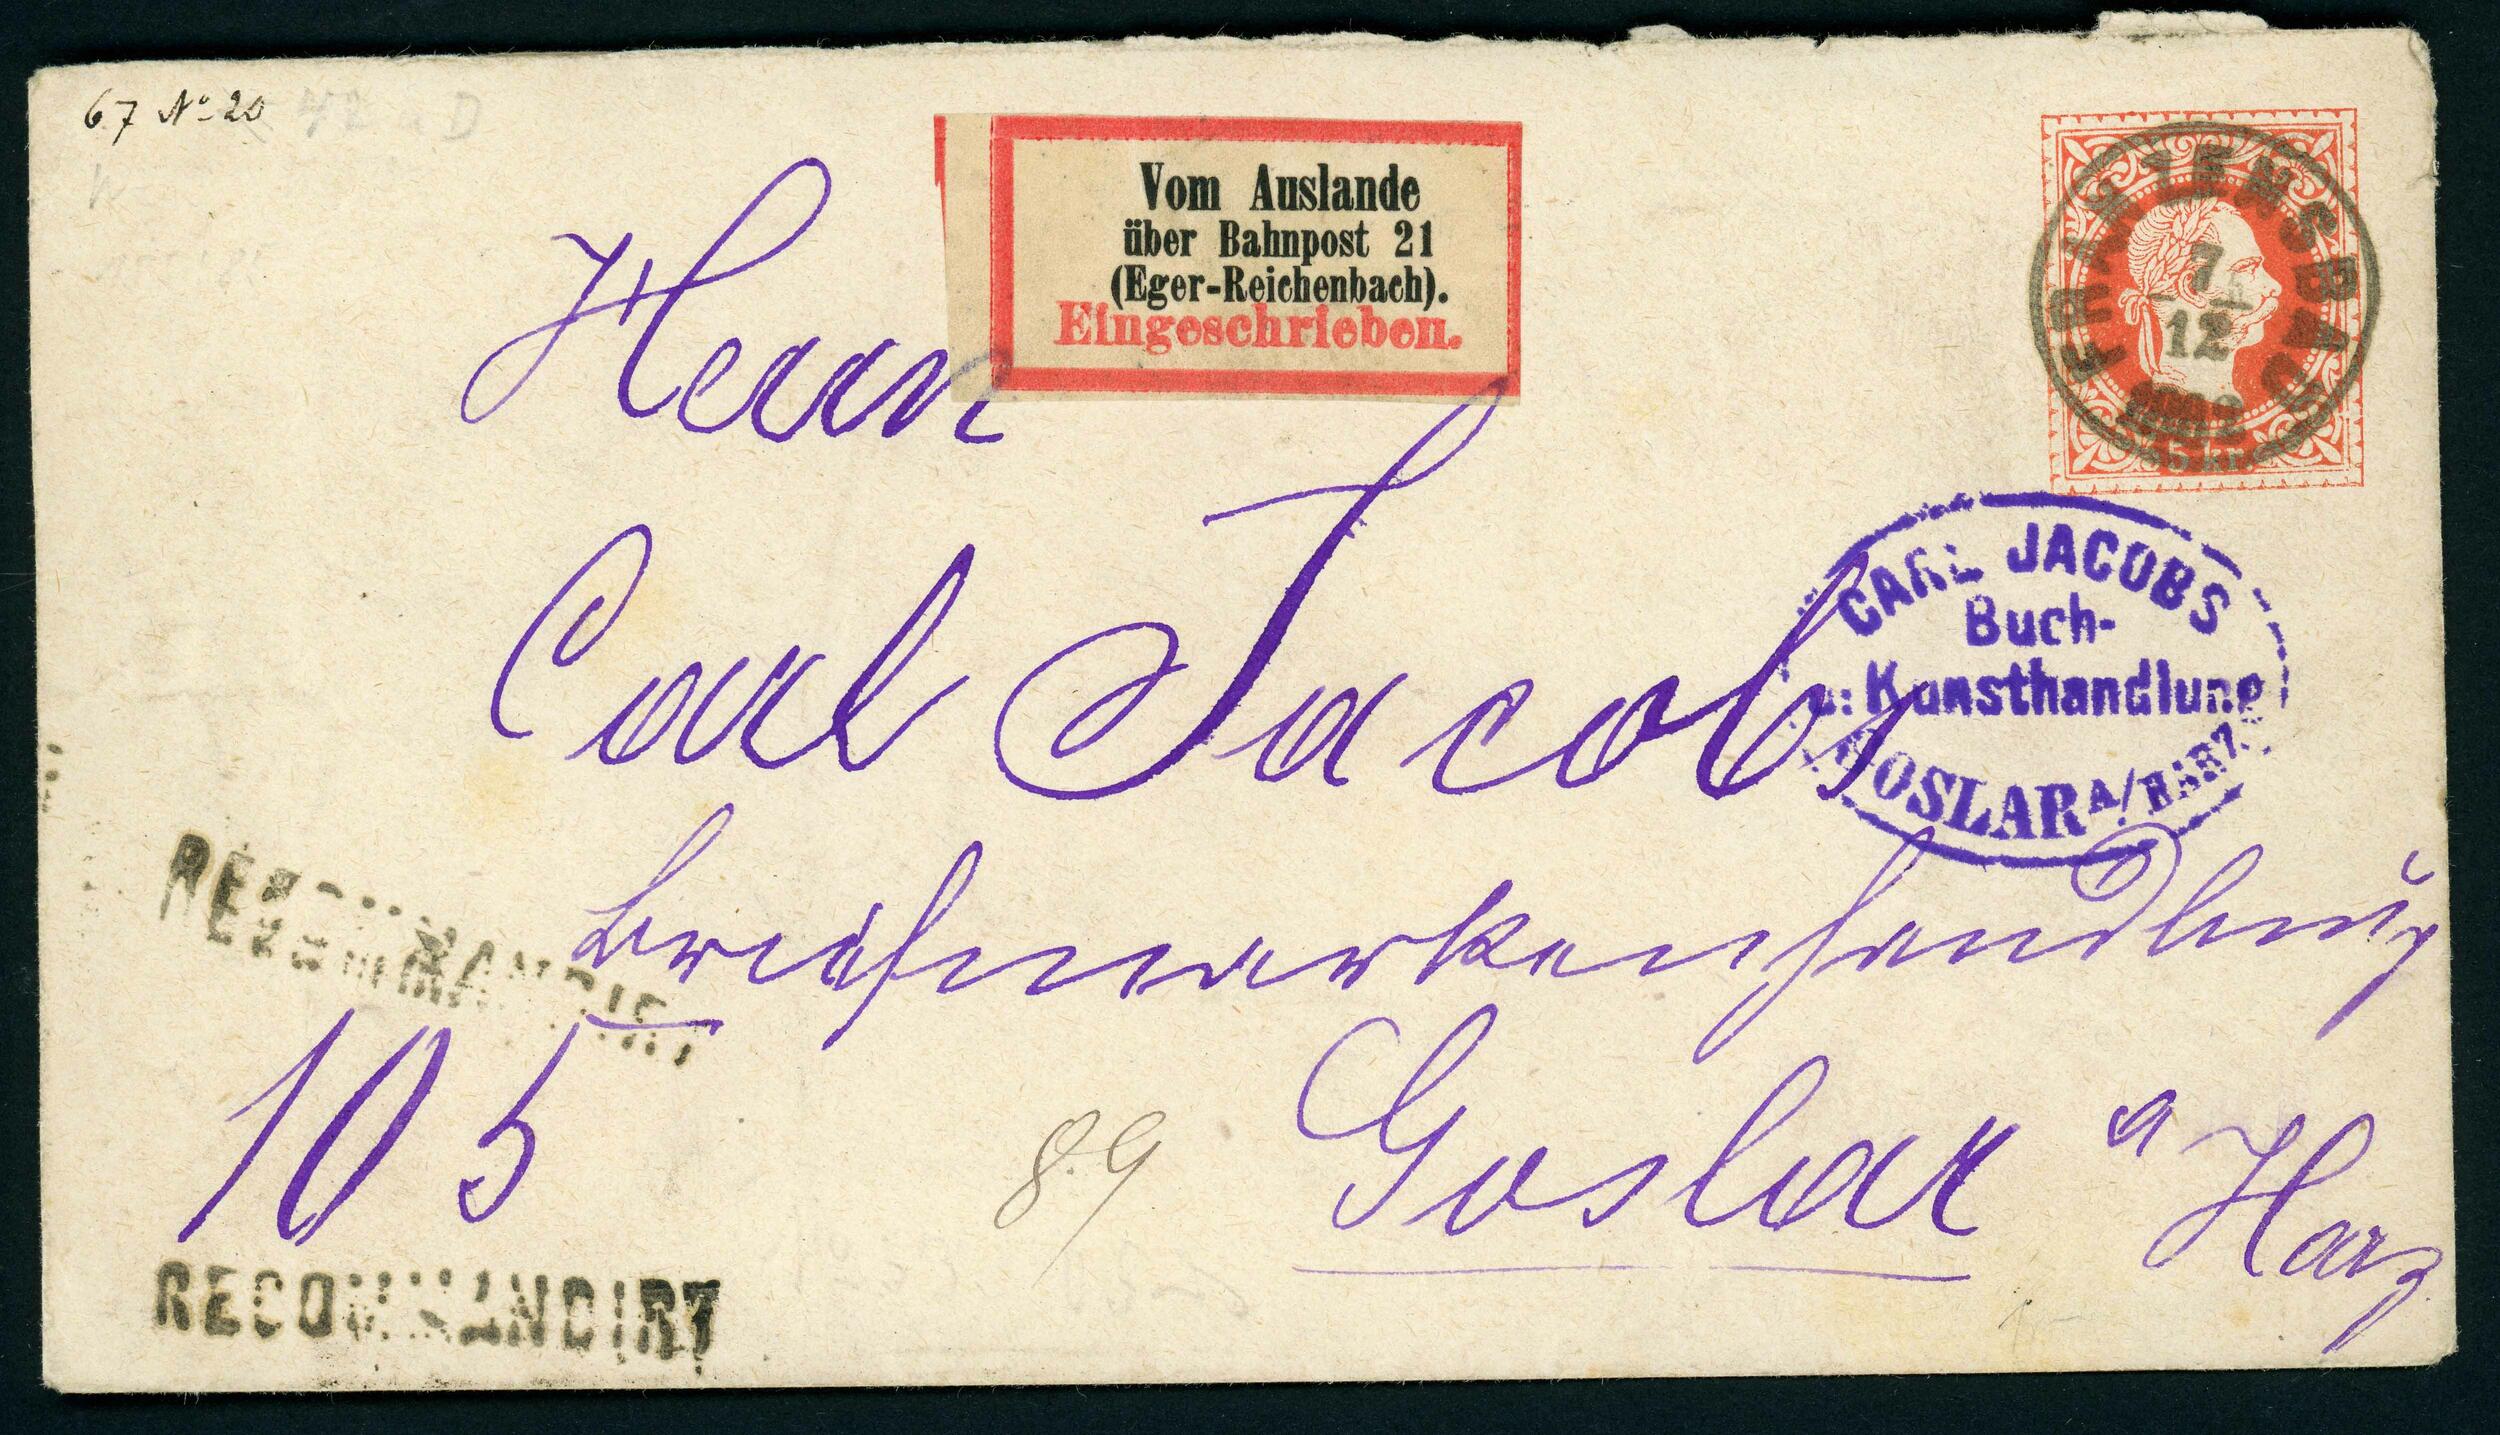 67 No 20
Vom Auslande
über Bahnpost 21
(Eger-Reichenbach).
Eingeschrieben.
FRANZENSBAD
7
12
5 kr.
Herrn
Carl Jacobs
Briefmarkenhandlung
CARL JACOBS
Buch-
u: Kunsthandlung
GOSLAR A/HARZ
RECOMMANDIRT
105
89
Goslar a Harz
RECOMMANDIRT